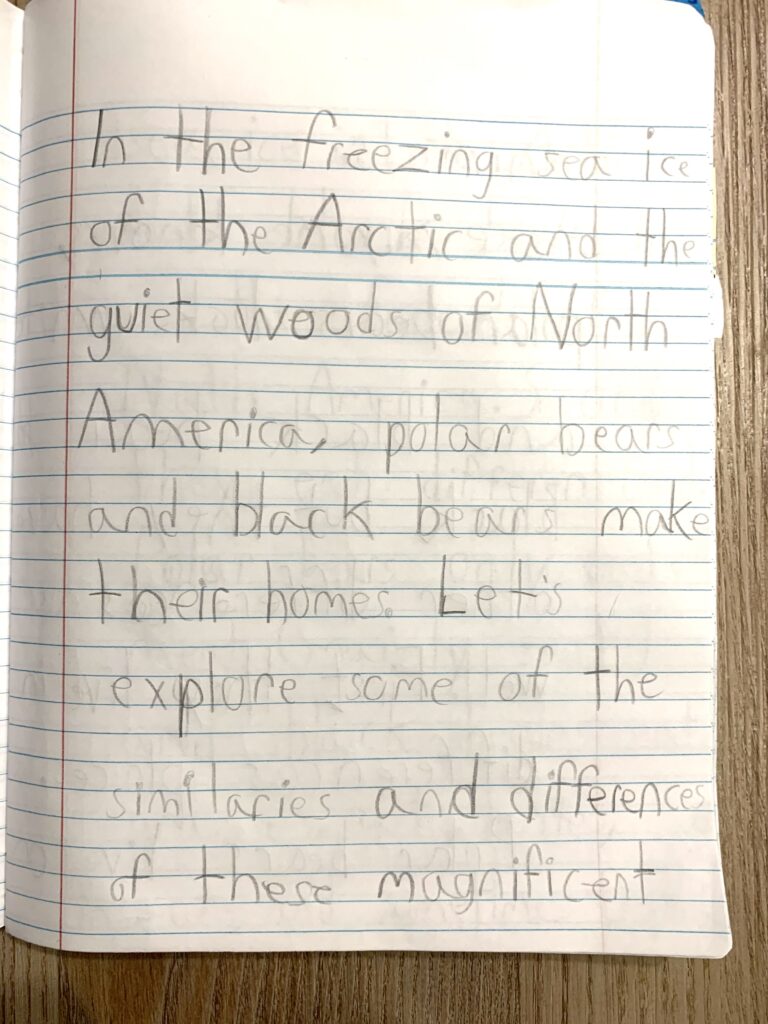 In the freezing sea ice
of the Arctic and the
quiet woods of North
America, polar bears
and black bears make
their homes. Let's
explore some of the
similaries and differences
of these magnificent